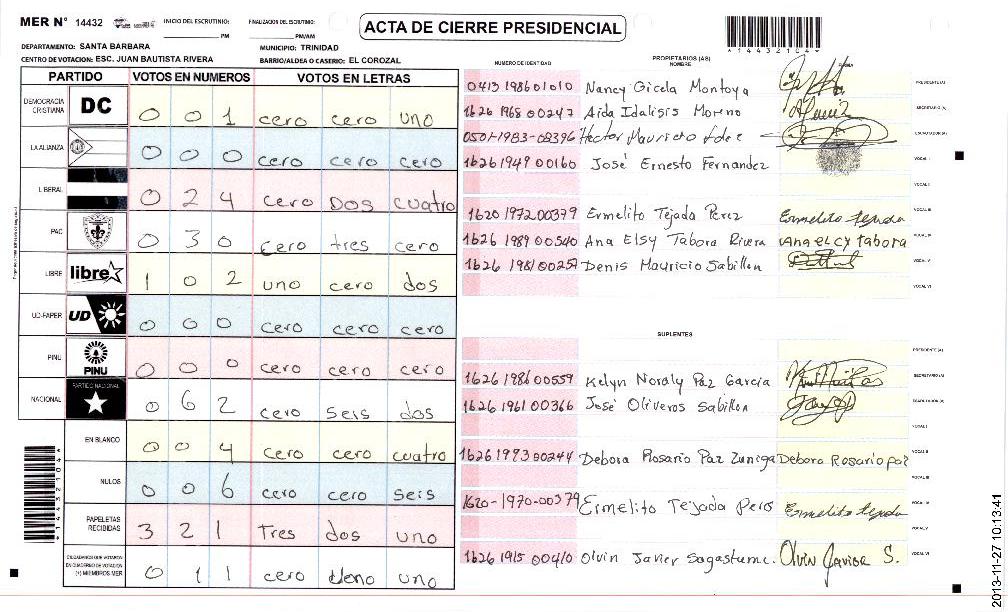 MER N° 14432
INICIO DEL ESCRUTINIO: PM
FINALIZACION DEL ESCRUTINIO: PM/AM
ACTA DE CIERRE PRESIDENCIAL
*14432104*
DEPARTAMENTO: SANTA BARBARA
MUNICIPIO: TRINIDAD
CENTRO DE VOTACION: ESC. JUAN BAUTISTA RIVERA
BARRIO/ALDEA O CASERIO: EL COROZAL
PARTIDO VOTOS EN NUMEROS VOTOS EN LETRAS
DEMOCRACIA CRISTIANA DC 0 0 1 cero cero uno
LA ALIANZA 0 0 0 cero cero cero
LIBERAL 0 2 4 cero Dos cuatro
PAC 0 3 0 cero tres cero
LIBRE libre 1 0 2 uno cero dos
UD-FAPER UD 0 0 0 cero cero cero
PINU PINU 0 0 0 cero cero cero
NACIONAL PARTIDO NACIONAL 0 6 2 cero seis dos
EN BLANCO 0 0 4 cero cero cuatro
NULOS 0 0 6 cero cero seis
PAPELETAS RECIBIDAS 3 2 1 Tres dos uno
CIUDADANOS QUE VOTARON EN CUADERNO DE VOTACION (+) MIEMBROS MER 0 1 1 cero uno
*14432104*
NUMERO DE IDENTIDAD
PROPIETARIOS (AS)
NOMBRE
FIRMA
0413 1986 01010 Nancy Gicela Montoya PRESIDENTE (A)
1626 1968 00247 Aida Idalisis Moreno SECRETARIO (A)
0501-1983-08396 Hector Mauricio ESCRUTADOR (A)
1626 1949 00160 José Ernesto Fernandez VOCAL I
VOCAL II
1620 1972 00379 Ermelito Tejada Perez Ermelito Tejada VOCAL III
1626 1989 00540 Ana Elsy Tabora Rivera Ana elcy tabora VOCAL IV
1626 1981 00257 Denis Mauricio Sabillon VOCAL V
VOCAL VI
SUPLENTES
PRESIDENTE (A)
1626 1986 00559 Kelyn Noraly Paz Garcia SECRETARIO (A)
1626 1961 00366 José Oliveros Sabillon ESCRUTADOR (A)
VOCAL I
1626 1993 00244 Debora Rosario Paz Zuniga Debora Rosario paz VOCAL II
VOCAL III
1620-1970-00379 Ermelito Tejada Peres Ermelito Tejada VOCAL IV
VOCAL V
1626 1915 00410 Olvin Javier Sagastume. Olvin Javier S. VOCAL VI
2013-11-27 10:13:41